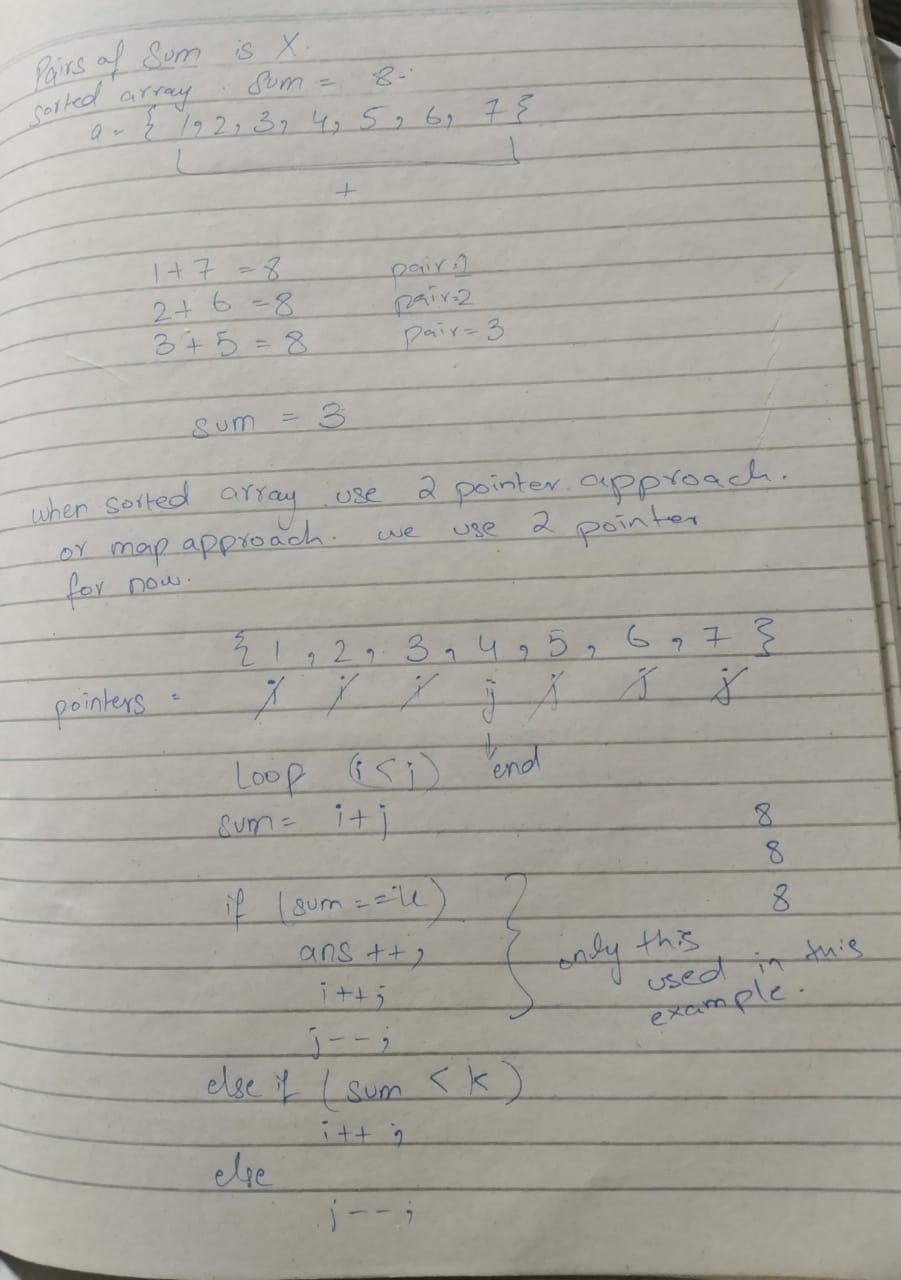 Pairs of Sum is X.
Sorted array. Sum = 8.
a = { 1, 2, 3, 4, 5, 6, 7 }
+
1 + 7 = 8 pair 1
2 + 6 = 8 pair = 2
3 + 5 = 8 pair = 3
sum = 3
when sorted array use 2 pointer approach.
or map approach. we use 2 pointer
for now.
{ 1, 2, 3, 4, 5, 6, 7 }
pointers = i i i j j j j
↓
Loop (i < j) end
sum = i + j 8
8
if (sum == k) 8
ans ++; only this
i++; used in this
j--; example.
else if (sum < k)
i++;
else
j--;